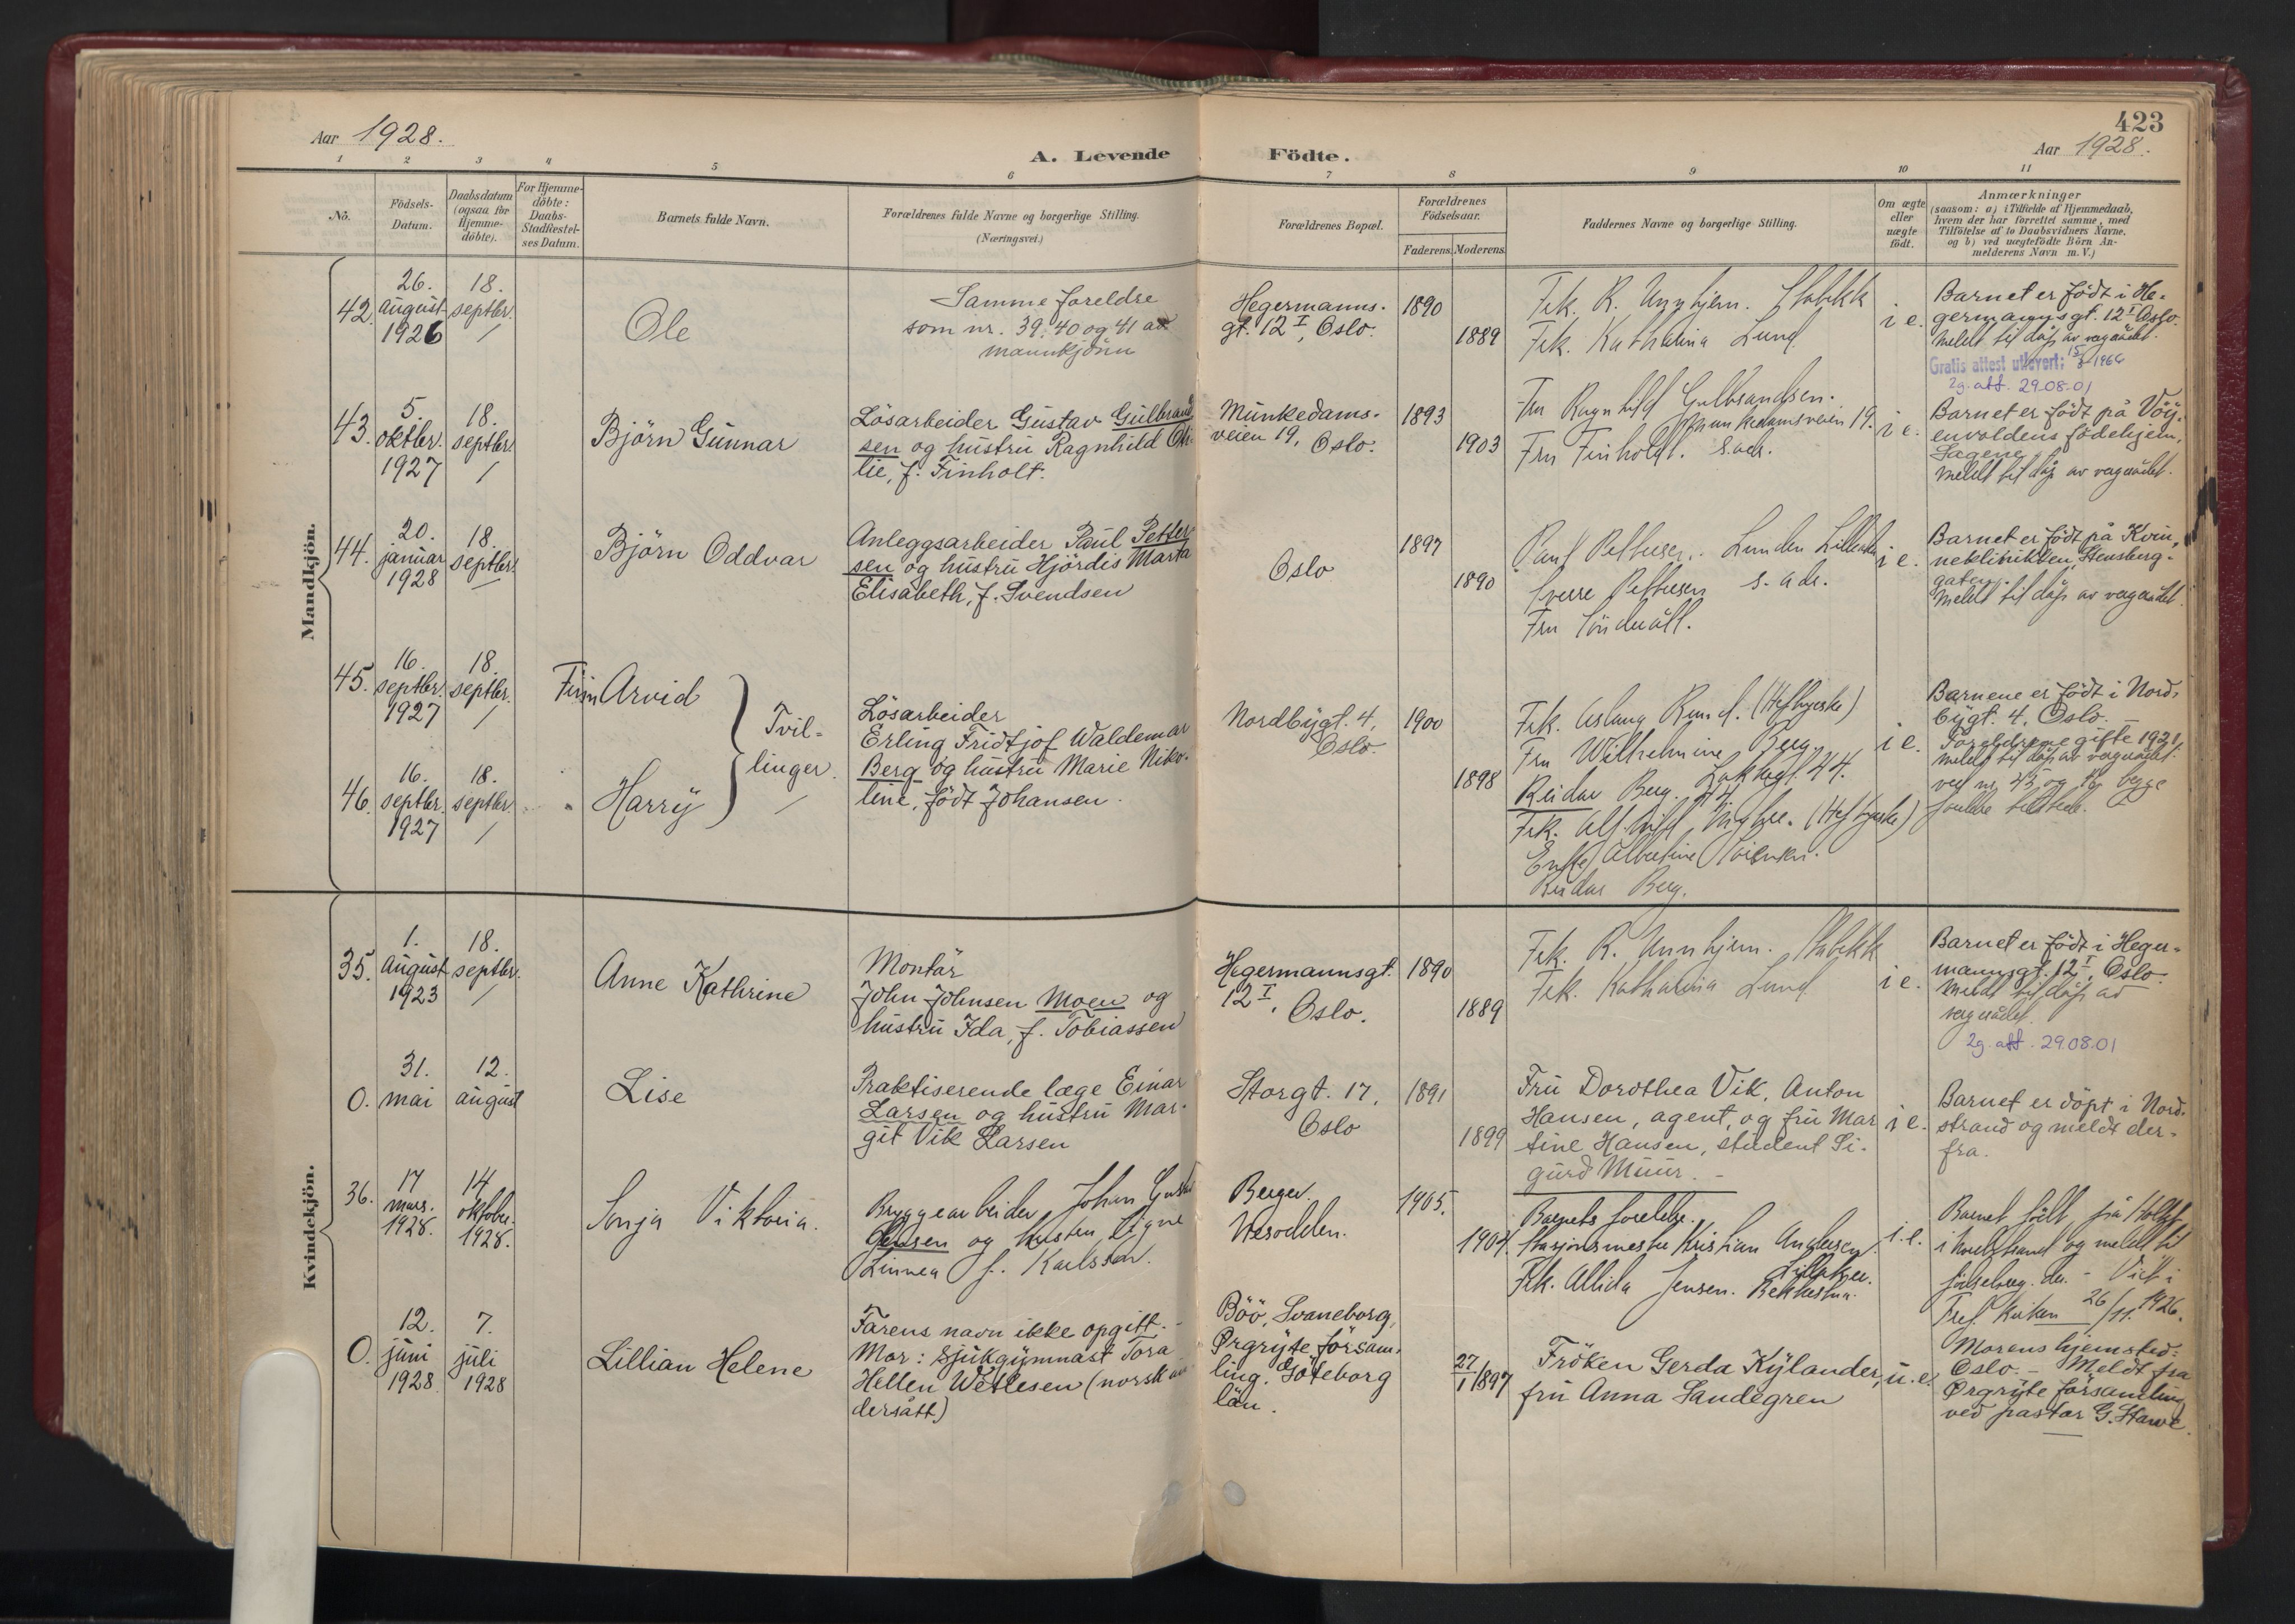 423
Aar 1928.
Aar 1928.
A. Levende Födte.
1 2 3 4 5 6 7 8 9 10 11
No.
Födsels-
Datum.
Daabsdatum
(ogsaa for
Hjemme-
döbte).
For Hjemme-
döbte:
Daabs-
Stadfæstel-
ses Datum.
Barnets fulde Navn.
Forældrenes fulde Navne og borgerlige Stilling.
(Næringsvei.)
Forældrenes Bopæl.
Forældrenes
Födselsaar.
Faderens. Moderens.
Faddernes Navne og borgerlige Stilling.
Om ægte
eller
uægte
födt.
Anmærkninger
(saasom: a) i Tilfælde af Hjemmedaab,
hvem der har forrettet samme, med
Tilföielse af to Daabsvidners Navne.
og b) ved uægtefödte Börn An-
melderens Navn m. V.)
Mandkjön.
42.
26.
august
1926
18.
septbr.
Ole
Samme foreldre
som nr. 39, 40 og 41 av
mannkjönn
Hegermanns-
gt. 12 I, Oslo.
1890
1889
Frk. R. Unnhjem. Stabekk
Frk. Kathalina Lund
i e.
Barnet er födt i He-
germannsgt. 12 I Oslo.
Meldt til dåp av vergerådet.
Gratis attest utlevert: 15/3-1966
2g. att. 29.08.01
43.
5.
oktbr.
1927
18.
septbr.
Björn Gunnar
Lösarbeider Gustav Gulbrand
sen og hustru Ragnhild Oti-
lie, f. Finholt.
Munkedams-
veien 19, Oslo.
1893
1903
Fru Ragnhild Gulbrandsen.
Munkedamsveien 19.
Fru Finholdt. s. adr.
i e.
Barnet er födt på Vöy-
envoldens födehjem,
Sagene
Meldt til dåp av vergerådet.
44.
20.
januar
1928
18.
septbr.
Björn Oddvar
Anleggsarbeider Paul Petter
sen og hustru Hjördis Marta
Elisabeth, f. Svendsen
Oslo
1897
1890
Paul Pettersen. Lunden
Sverre Pettersen s. adr.
Fru
i e.
Barnet er födt på Kvin-
neklinikken, Stensberg-
gaten.
Meldt til dåp av vergerådet.
45.
16.
septbr.
1927
18.
septbr.
Finn Arvid
Tvil-
linger.
46.
16.
septbr.
1927
18.
septbr.
Harry
Lösarbeider
Erling Fridtjof Waldemar
Berg og hustru Marie Niko-
line, födt Johansen.
Nordbygt. 4,
Oslo.
1900
1898
Frk. Aslaug Rund. (Heftyeske)
Fru Wilhelmine Berg.
Reidar Berg. Lakkegt. 44.
Frk. (Heftyeske)
Enke Albertine
Reidar Berg.
i e.
Barnene er födt i Nord-
bygt. 4, Oslo.
Foreldrene gifte 1921
Meldt til dåp av vergerådet.
ved nr. 45 og 46 begge
Kvindekjön.
35.
1.
august
1923
18.
septbr.
Anne Kathrine
Montör
John Johnsen Moen og
hustru Ida, f. Tobiassen
Hegermannsgt.
12 I, Oslo.
1890
1889
Frk. R. Unnhjem. Stabekk
Frk. Kathalina Lund
i e.
Barnet er födt i Heger-
mannsgt. 12 I, Oslo.
Meldt til dåp av
vergerådet.
2g. att. 29.08.01
0.
31.
mai
12.
august
Lise
Praktiserende læge Einar
Larsen og hustru Mar-
git Vik Larsen
Storgt. 17,
Oslo
1891
1899
Fru Dorothea Vik, Anton
Hansen, agent, og fru Mar
tine Hansen, student Si-
gurd Muur. -
i e.
Barnet er döpt i Nord-
strand og meldt der-
fra.
36.
17
mars.
1928.
14
oktober.
1928.
Sonja Viktoria.
Bryggearbeider Johan
Jensen og hustru Signe
Linnea f. Karlsson.
Berger.
Nesodden.
1905.
1904.
Barnets foreldre.
Stasjonsmester Kristian Andersen.
Lilleaker.
Frk. Allida Jensen. Bekkestua.
i. e.
Barnet födt på
i og meldt til
der. - Viet i
Tref. kirken 26/11 1926.
0.
12.
juni
1928
7.
juli
1928
Lillian Helene
Farens navn ikke opgitt. -
Mor: sjukgymnast Tora
Hellen Wetlesen (norsk un
dersått)
Böö, Svaneborg,
Örgryte försam-
ling, Göteborg
län.
27/1 1897
Fröken Gerda Kylander,
fru Anna Sandegren
u. e.
Morens hjemsted:
Oslo. - Meldt fra
Örgryte församling
ved pastor G. Hawe.